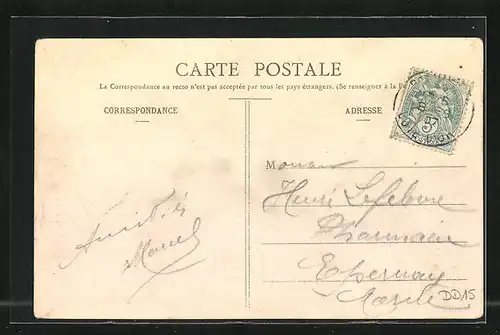 CARTE POSTALE
La Correspondance au recto n'est pas acceptée par tous les pays étrangers. (Se renseigner à la
CORRESPONDANCE
ADRESSE
Henri Lefebvre
Pharmacien
Epernay
Marne
Amitiés
Marcel
DD15